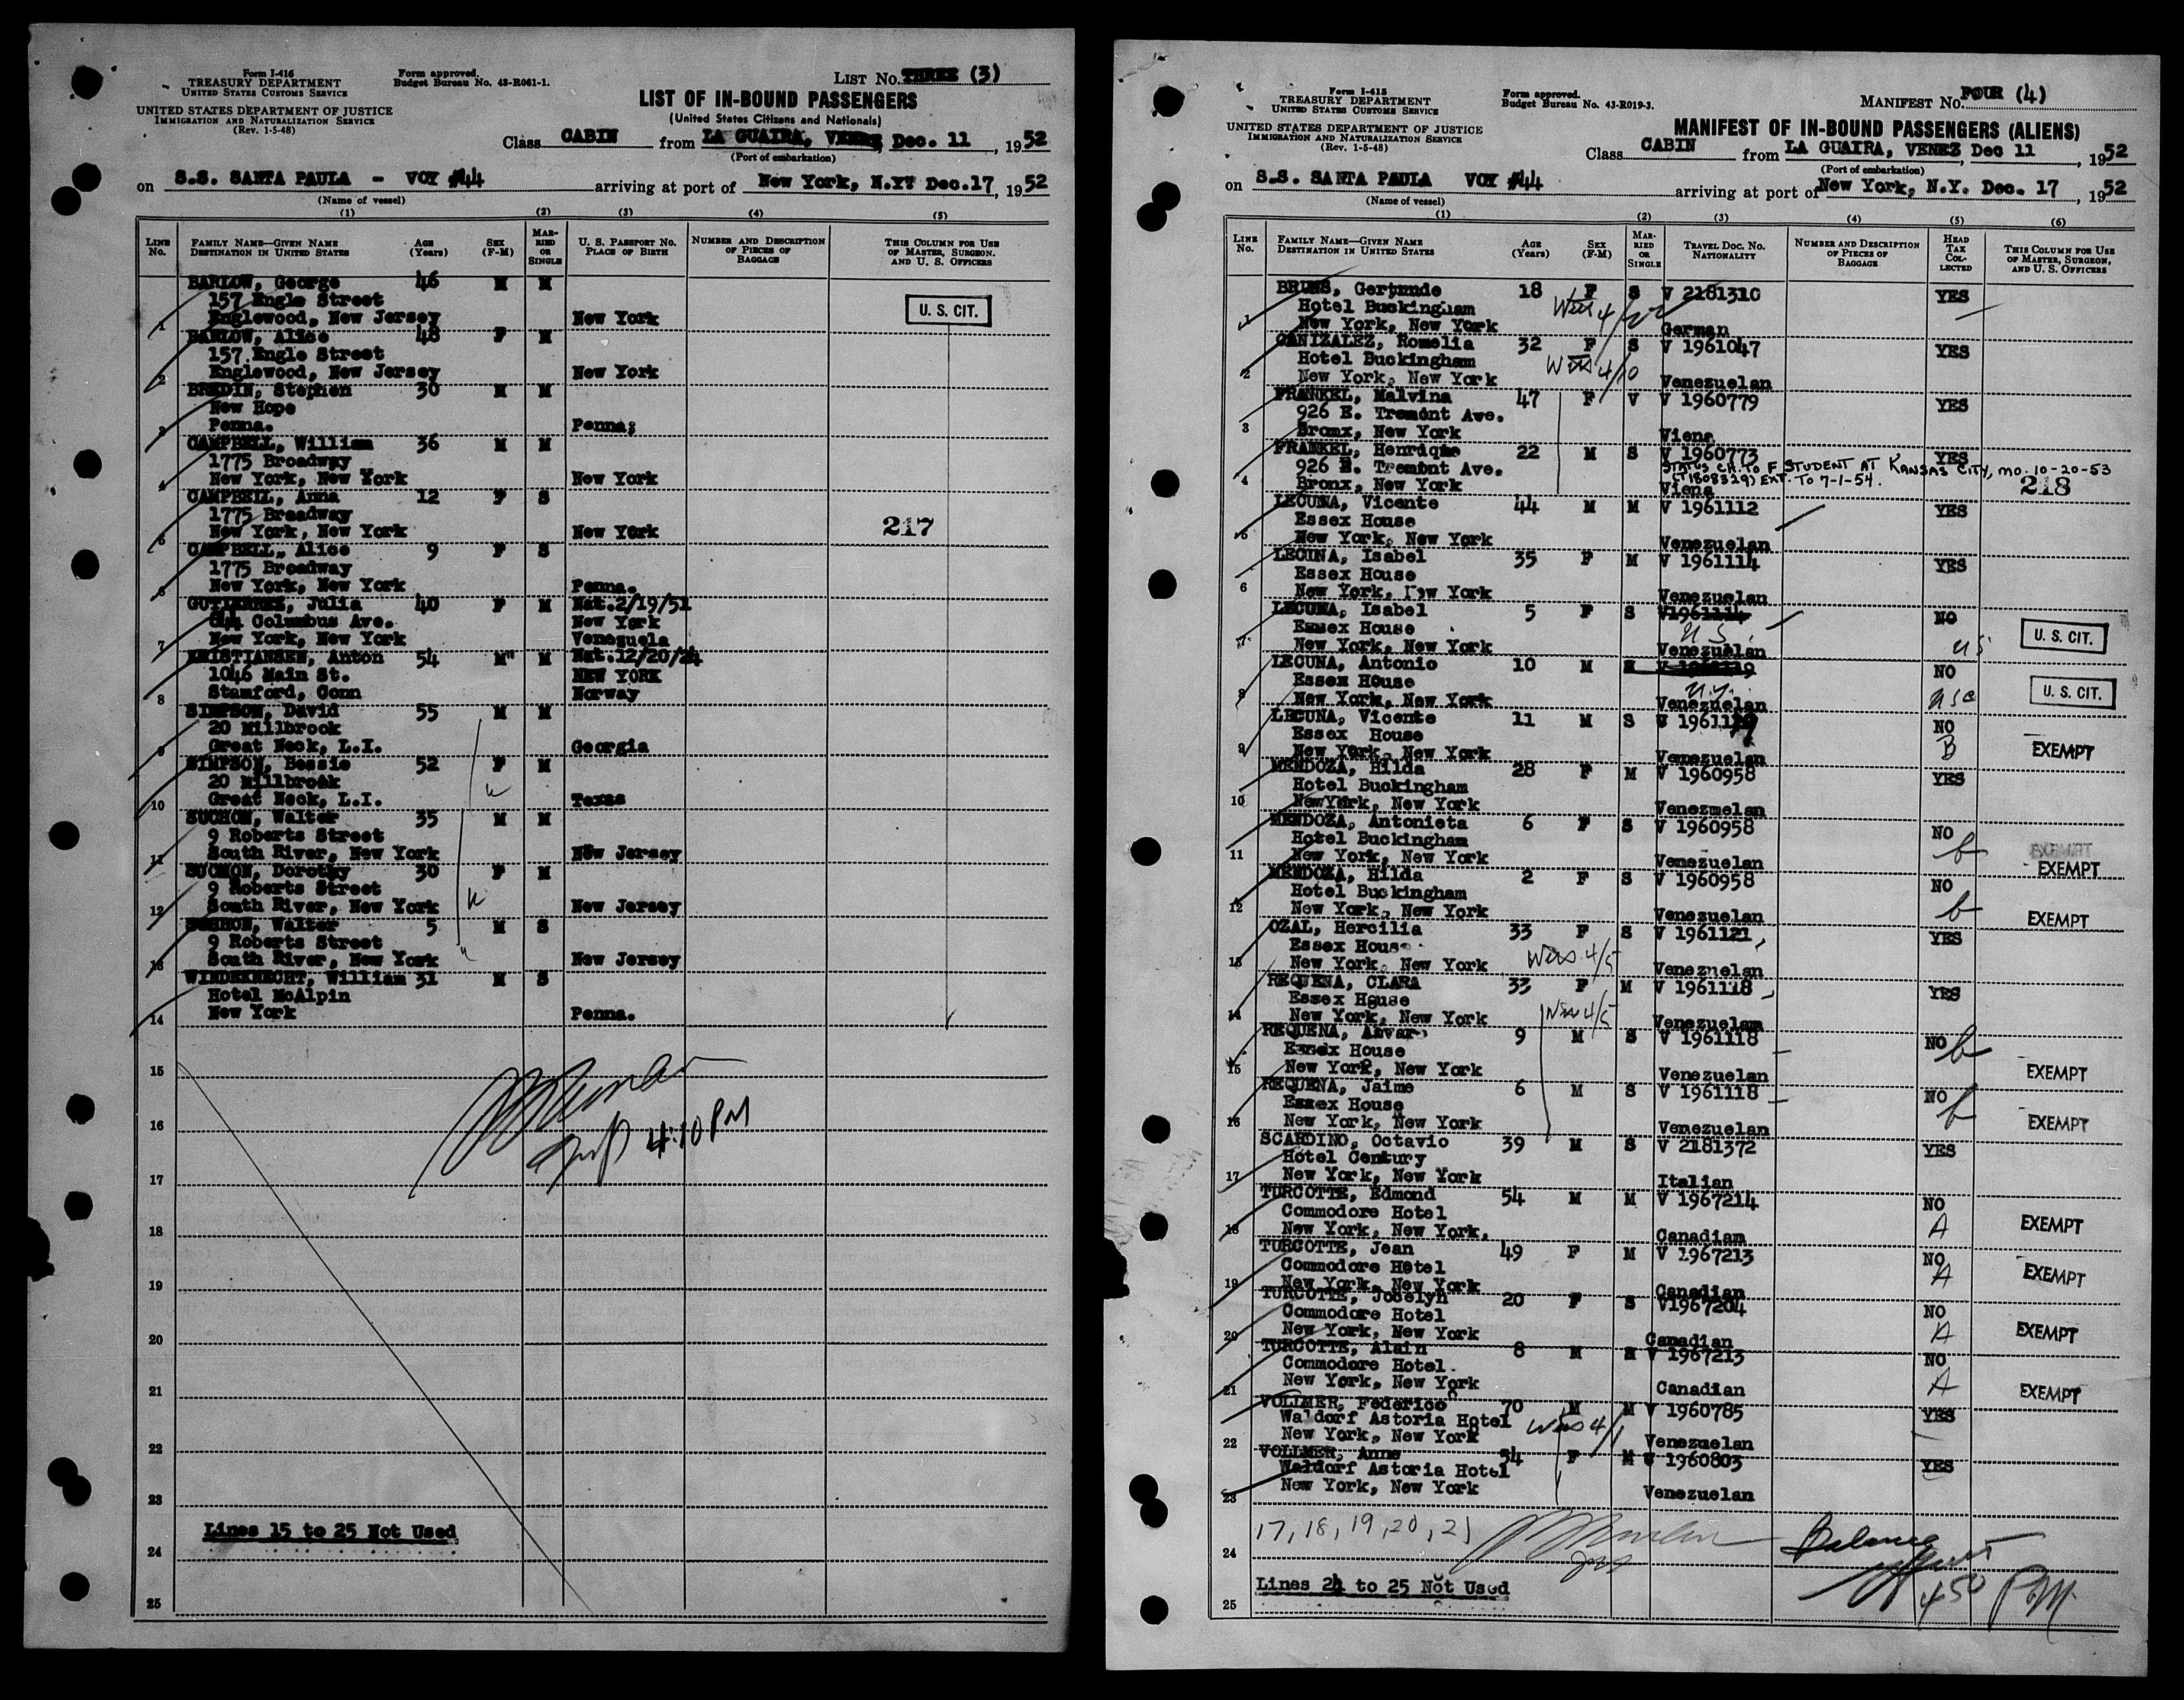 Form I-416
TREASURY DEPARTMENT
UNITED STATES CUSTOMS SERVICE
UNITED STATES DEPARTMENT OF JUSTICE
IMMIGRATION AND NATURALIZATION SERVICE
(Rev. 1-5-48)
Form approved.
Budget Bureau No. 43-R061-1.
LIST NO. THREE (3)
LIST OF IN-BOUND PASSENGERS
(United States Citizens and Nationals)
Class CABIN from LA GUAIRA, VENEZ, Dec. 11, 1952
(Port of embarkation)
on S.S. SANTA PAULA - VOY #44 arriving at port of New York, N.Y. Dec.17, 1952
(Name of vessel)
(1) (2) (3) (4) (5)
LINE NO. FAMILY NAME—GIVEN NAME DESTINATION IN UNITED STATES AGE (Years) SEX (F-M) MARRIED OR SINGLE U. S. PASSPORT NO. PLACE OF BIRTH NUMBER AND DESCRIPTION OF PIECES OF BAGGAGE THIS COLUMN FOR USE OF MASTER, SURGEON, AND U. S. OFFICERS
BARLOW, George 46 M M
157 Engle Street U. S. CIT.
1 Englewood, New Jersey New York
BARLOW, Alice 48 F M
157 Engle Street
2 Englewood, New Jersey New York
BREDIN, Stephen 30 M M
New Hope
3 Penna. Penna;
CAMPBELL, William 36 M M
1775 Broadway
4 New York, New York New York
CAMPBELL, Anna 12 F S
1775 Broadway
5 New York, New York New York 217
CAMPBELL, Alice 9 F S
1775 Broadway
6 New York, New York Penna.
GUTIERREZ, Julia 40 F M Nat.2/19/51
Columbus Ave. New York
7 New York, New York Venezuela
KRISTIANSEN, Anton 54 M" M Nat.12/20/24
1046 Main St. NEW YORK
8 Stamford, Conn Norway
SIMPSON, David 55 M M
20 Millbrook
9 Great Neck, L.I. Georgia
SIMPSON, Bessie 52 F M
20 Millbrook
10 Great Neck, L.I. Texas
SUCHON, Walter 35 M M
9 Roberts Street
11 South River, New York New Jersey
SUCHON, Dorothy 30 F M
9 Roberts Street
12 South River, New York New Jersey
SUCHON, Walter 5 M S
9 Roberts Street
13 South River, New York New Jersey
WINDEKNECHT, William 31 M S
Hotel McAlpin
14 New York Penna.
15
16
4:10 PM
17
18
19
20
21
22
23
Lines 15 to 25 Not Used
24
25
Form I-415
TREASURY DEPARTMENT
UNITED STATES CUSTOMS SERVICE
UNITED STATES DEPARTMENT OF JUSTICE
IMMIGRATION AND NATURALIZATION SERVICE
(Rev. 1-5-48)
Form approved.
Budget Bureau No. 43-R019-3.
MANIFEST NO. FOUR (4)
MANIFEST OF IN-BOUND PASSENGERS (ALIENS)
Class CABIN from LA GUAIRA, VENEZ Dec 11, 1952
(Port of embarkation)
on S.S. SANTA PAULA VOY #44 arriving at port of New York, N.Y. Dec. 17, 1952
(Name of vessel)
(1) (2) (3) (4) (5) (6)
LINE NO. FAMILY NAME—GIVEN NAME DESTINATION IN UNITED STATES AGE (Years) SEX (F-M) MARRIED OR SINGLE TRAVEL DOC. NO. NATIONALITY NUMBER AND DESCRIPTION OF PIECES OF BAGGAGE HEAD TAX COLLECTED THIS COLUMN FOR USE OF MASTER, SURGEON, AND U. S. OFFICERS
BRUNS, Gertrude 18 F S V 2181310 YES
Hotel Buckingham
1 New York, New York German
CANIZALEZ, Romelia 32 F S V 1961047 YES
Hotel Buckingham
2 New York, New York Venezuelan
FRANKEL, Malvina 47 F V V 1960779 YES
926 E. Tremont Ave.
3 Bronx, New York Viena
FRANKEL, Henrique 22 M S V 1960773 YES
926 E. Tremont Ave. STATUS CH. TO F STUDENT AT KANSAS CITY, MO. 10-20-53
(T1808329) EXT. TO 7-1-54.
4 Bronx, New York Viena 218
LECUNA, Vicente 44 M M V 1961112 YES
Essex House
5 New York, New York Venezuelan
LECUNA, Isabel 35 F M V 1961114 YES
Essex House
6 New York, New York Venezuelan
LECUNA, Isabel 5 F S V1961114 NO
Essex House U.S. U. S. CIT.
7 New York, New York Venezuelan US
LECUNA, Antonio 10 M NO
Essex House U. S. CIT.
8 New York, New York Venezuelan USC
LECUNA, Vicente 11 M S V 1961119 NO
Essex House B EXEMPT
9 New York, New York Venezuelan
MENDOZA, Hilda 28 F M V 1960958 YES
Hotel Buckingham
10 New York, New York Venezuelan
MENDOZA, Antonieta 6 F S V 1960958 NO
Hotel Buckingham b EXEMPT
11 New York, New York Venezuelan EXEMPT
MENDOZA, Hilda 2 F S V 1960958 NO
Hotel Buckingham
12 New York, New York Venezuelan b EXEMPT
OZAL, Hercilia 33 F S V 1961121 YES
Essex House
13 New York, New York Venezuelan
REQUENA, CLARA 33 F M V 1961118 YES
Essex House
14 New York, New York Venezuelan
REQUENA, Alvaro 9 M S V 1961118 NO b
Essex House
15 New York, New York Venezuelan EXEMPT
REQUENA, Jaime 6 M S V 1961118 NO
Essex House b
16 New York, New York Venezuelan EXEMPT
SCARDINO, Octavio 39 M S V 2181372 YES
Hotel Century
17 New York, New York Italian
TURCOTTE, Edmond 54 M M V 1967214 NO
Commodore Hotel
18 New York, New York, Canadian A EXEMPT
TURCOTTE, Jean 49 F M V 1967213 NO
Commodore Hotel A EXEMPT
19 New York, New York Canadian
TURCOTTE, Jocelyn 20 F S V1967204 NO
Commodore Hotel
20 New York, New York Canadian A EXEMPT
TURCOTTE, Alain 8 M V 1967213 NO
Commodore Hotel.
21 New York, New York Canadian A EXEMPT
VOLLMER, Federico 70 M M V 1960785 YES
Waldorf Astoria Hotel
22 New York, New York Venezuelan
VOLLMER, Anne 54 F M V 1960803 YES
Waldorf Astoria Hotel
23 New York, New York Venezuelan
17, 18, 19, 20, 21 Balance
24
Lines 24 to 25 Not Used 450 PM
25